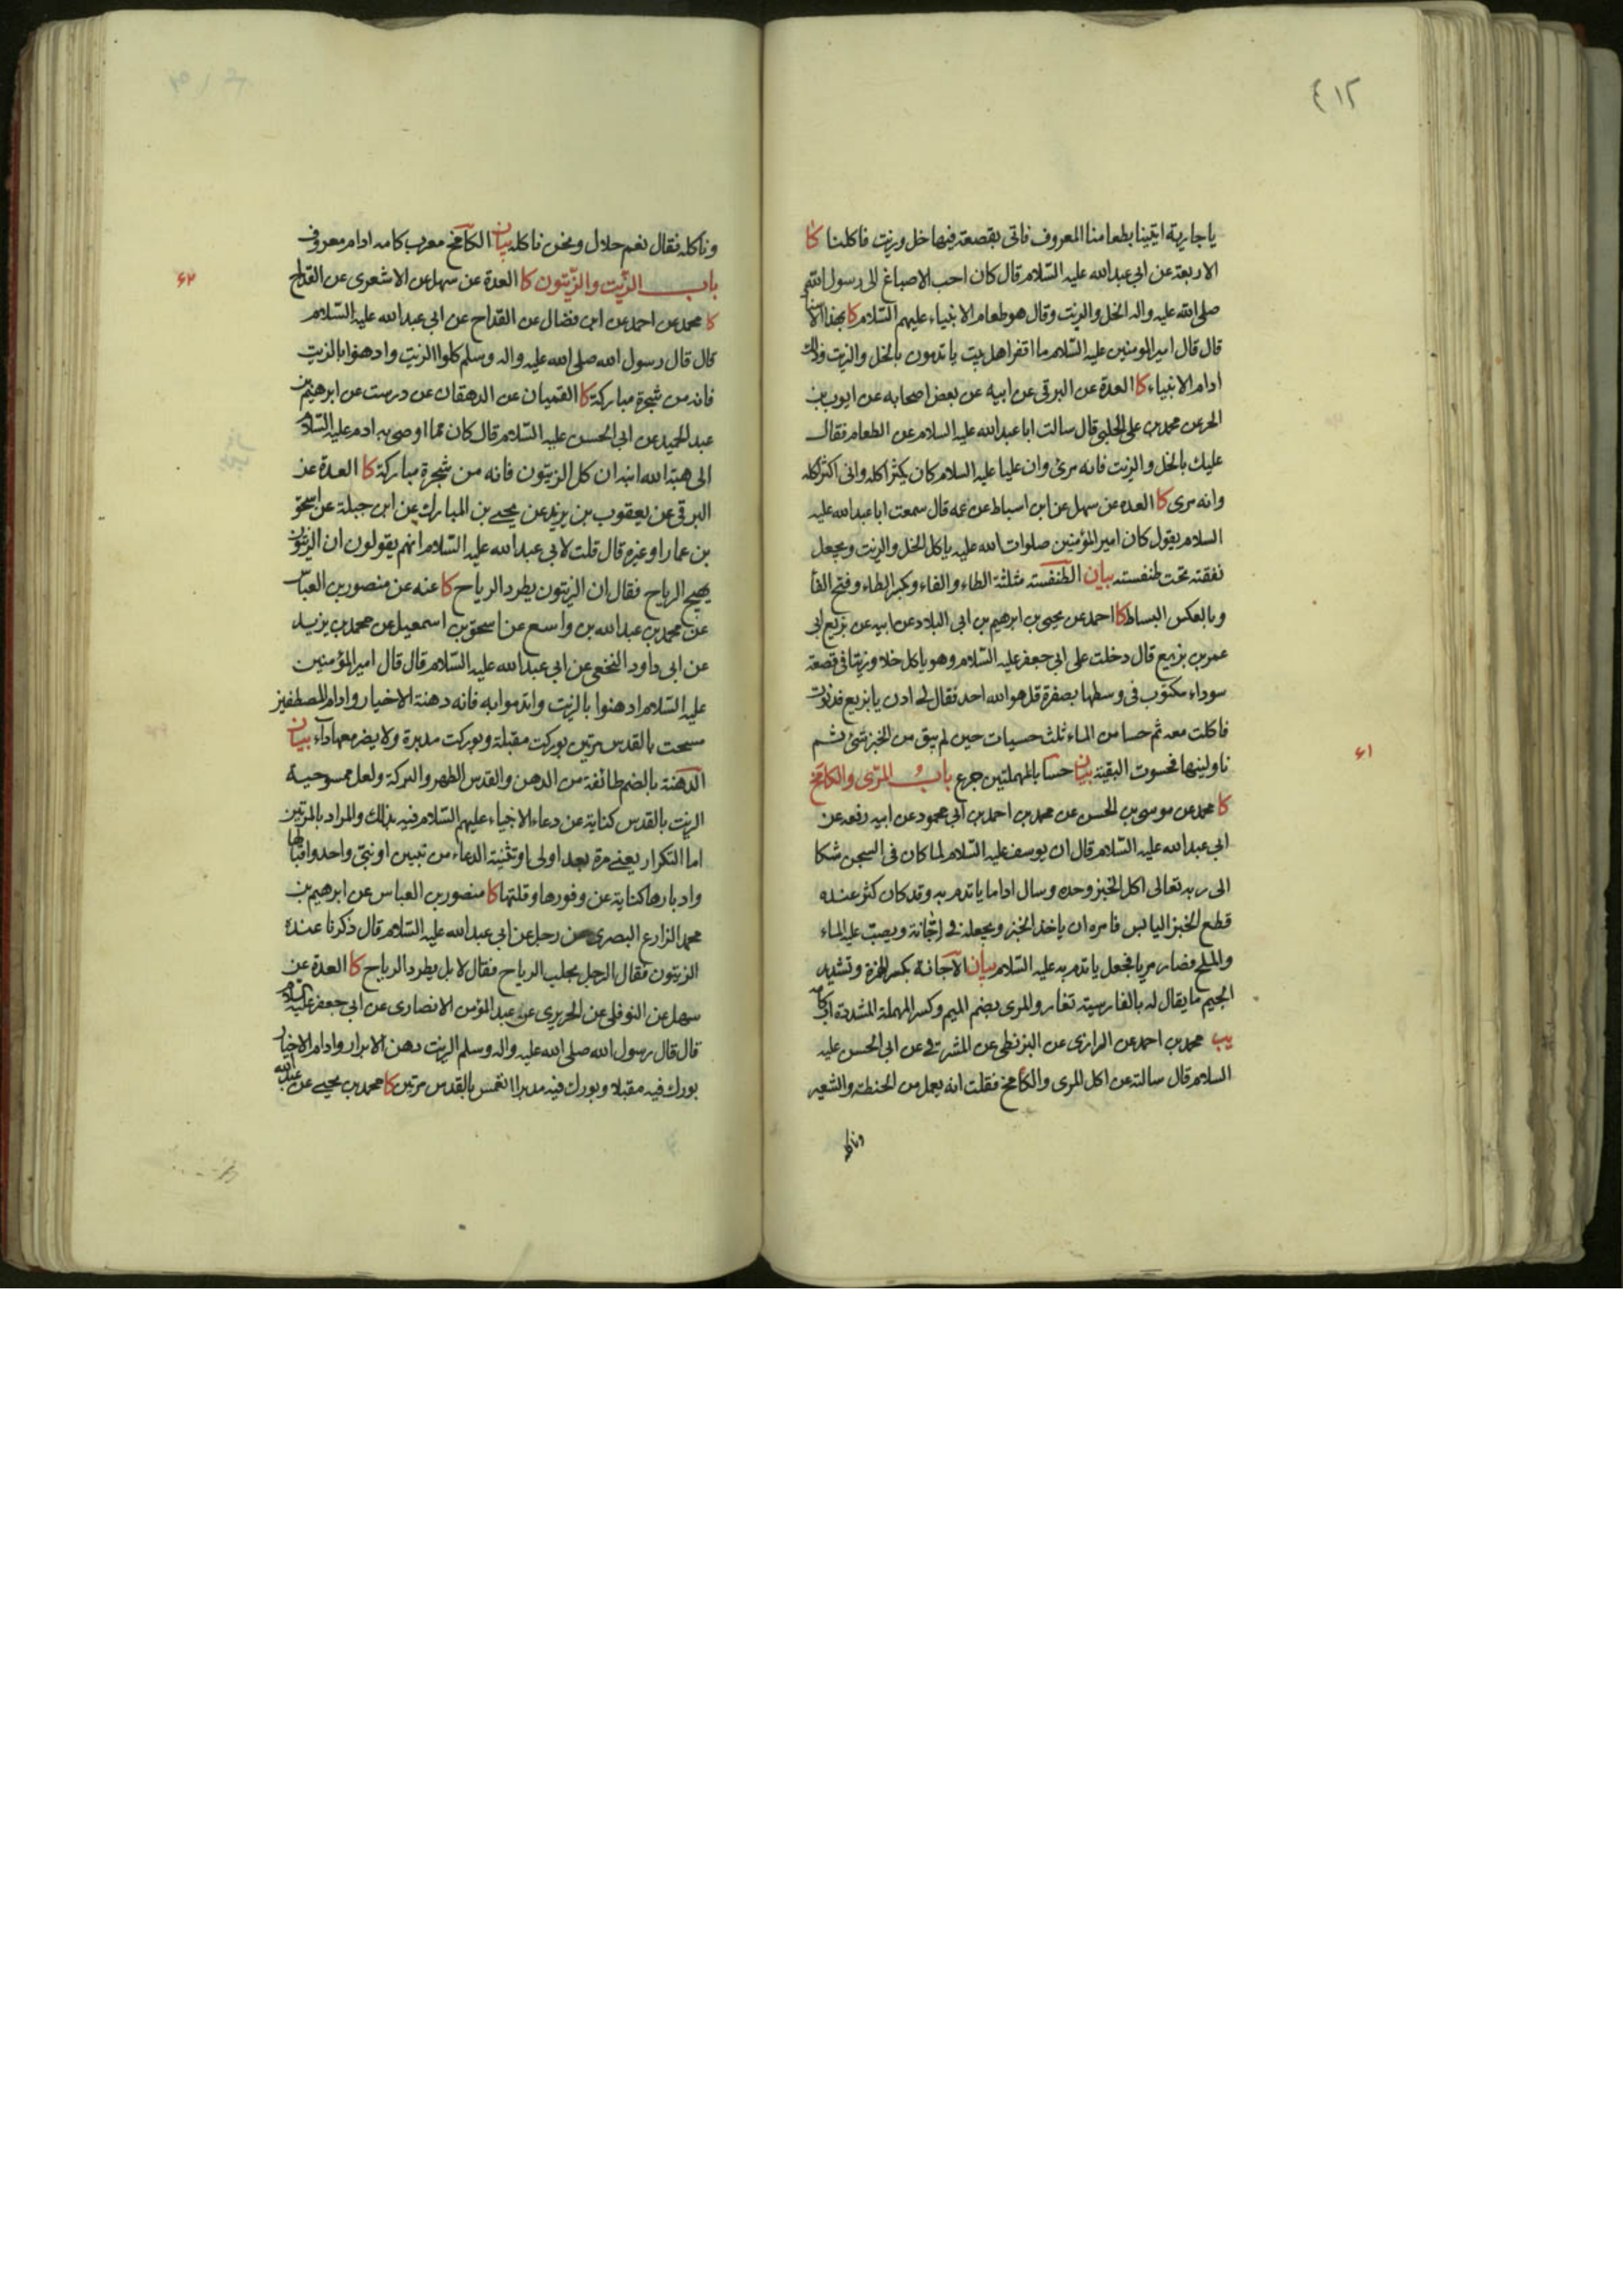 ٤١٢
يا جارية ايتينا بطعامنا المعروف فاتى بقصعة فيها خل وزيت فاكلنا كا
الاربعة عن ابي عبدالله عليه السلام قال كان احب الاصباغ الى رسول الله
صلى الله عليه واله الخل والزيت وقال هو طعام الانبياء عليهم السلام كا بهذا الاسناد
قال قال امير المومنين عليه السلام ما اقفر اهل بيت ياتدمون بالخل والزيت وذلك
ادام الانبياء كا العدة عن البرقي عن ابيه عن بعض اصحابه عن ايوب بن
الحر عن محمد بن علي الحلبي قال سالت ابا عبدالله عليه السلام عن الطعام فقال
عليك بالخل والزيت فانه مرئ وان عليا عليه السلام كان يكثر اكله واني اكثر اكله
وانه مرى كا العده عن سهل عن ابن اسباط عن عمه قال سمعت ابا عبدالله عليه
السلام يقول كان امير المؤمنين صلوات الله عليه ياكل الخل والزيت ويجعل
نفقته تحت طنفسته بيان الطنفسة مثلثة الطاء والفاء وكبسر الطاء وفتح الفا
وبالعكس البساط كا احمد عن يحيى بن ابرهيم بن ابي البلاد عن ابيه عن بزيع ابي
عمر بن بزيع قال دخلت على ابي جعفر عليه السلام وهو ياكل خلا وزيتا في قصعة
سوداء مكتوب في وسطها بصفرة قل هو الله احد فقال لي ادن يا بزيع فدنوت
فاكلت معه ثم حسا من الماء ثلث حسيات حين لم يبق من الخبز شئ ثم
ناولينها فحسوت البقية بيان حسا بالمهملتين جرع باب المرّى والكامَخ
٤١
كا محمد عن موسى بن الحسن عن محمد بن احمد بن ابي محمود عن ابيه رفعه عن
ابي عبدالله عليه السلام قال ان يوسف عليه السلام لما كان في السجن شكا
الى ربه تعالى اكل الخبز وحده وسال اداما ياتدم به وقد كان كثر عنده
قطع الخبز اليابس فامره ان ياخذ الخبز ويجعله في اجّانة ويصب عليه الماء
والملح فصار مريا فجعل ياتدم به عليه السلام بيان الاجانة بكسر الهمزة وتشديد
الجيم ما يقال له بالفارسية تغار والمرى بضم الميم وكسر المهملة المشددة آبكامه
يب محمد بن احمد عن الرازى عن البزنطى عن المشرقي عن ابي الحسن عليه
السلام قال سالته عن اكل المرى والكامخ فقلت انه يعمل من الحنطة والشعير
وناكله
وناكله فقال نعم حلال ونحن ناكله بيان الكامخ معرب كامه ادام معروف
باب الزّيت والزّيتون كا العدة عن سهل عن الاشعرى عن القداح
٤٢
كا محمد عن احمد عن ابن فضال عن القداح عن ابي عبدالله عليه السلام
قال قال رسول الله صلى الله عليه واله وسلم كلوا الزيت وادهنوا بالزيت
فانه من شجرة مباركة كا القميان عن الدهقان عن درست عن ابرهيم بن
عبد الحميد عن ابي الحسن عليه السلام قال كان مما اوصى به ادم عليه السلام
الى هبة الله ابنه ان كل الزيتون فانه من شجرة مباركة كا العدة عن
البرقي عن يعقوب بن يزيد عن يحيى بن المبارك عن ابن جبلة عن اسحق
بن عمار او غيره قال قلت لابي عبدالله عليه السلام انهم يقولون ان الزيتون
يهيج الرياح فقال ان الزيتون يطرد الرياح كا عنه عن منصور بن العباس
عن محمد بن عبد الله بن واسع عن اسحق بن اسمعيل عن محمد بن يزيد
عن ابي داود النخعي عن ابي عبدالله عليه السلام قال قال امير المؤمنين
عليه السلام ادهنوا بالزيت واتدموا به فانه دهنة الاخيار وادام المصطفين
مسحت بالقدس مرتين بوركت مقبلة وبوركت مدبرة ولا يضر معها داء بيان
الدهنة بالضم طائفة من الدهن والقدس الطهر والبركة ولعل ممسوحية
الزيت بالقدس كناية عن دعاء الانبياء عليهم السلام فيه بذلك والمراد بالمرتين
اما التكرار يعني مرة بعد اولى او تثنية الدعاء من نبيين او نبي واحد واقبالها
وادبارها كناية عن وفورها وقلتها كا منصور بن العباس عن ابرهيم بن
محمد الزارع البصرى عن رجل عن ابي عبدالله عليه السلام قال ذكرنا عنده
الزيتون فقال الرجل يجلب الرياح فقال لا بل يطرد الرياح كا العدة عن
سهل عن النوفلى عن الجريرى عن عبد المؤمن الانصارى عن ابي جعفر عليه السلام
قال قال رسول الله صلى الله عليه واله وسلم الزيت دهن الابرار وادام الاخيار
بورك فيه مقبلا وبورك فيه مدبرا انغمس بالقدس مرتين كا محمد بن يحيى عن عبدالله